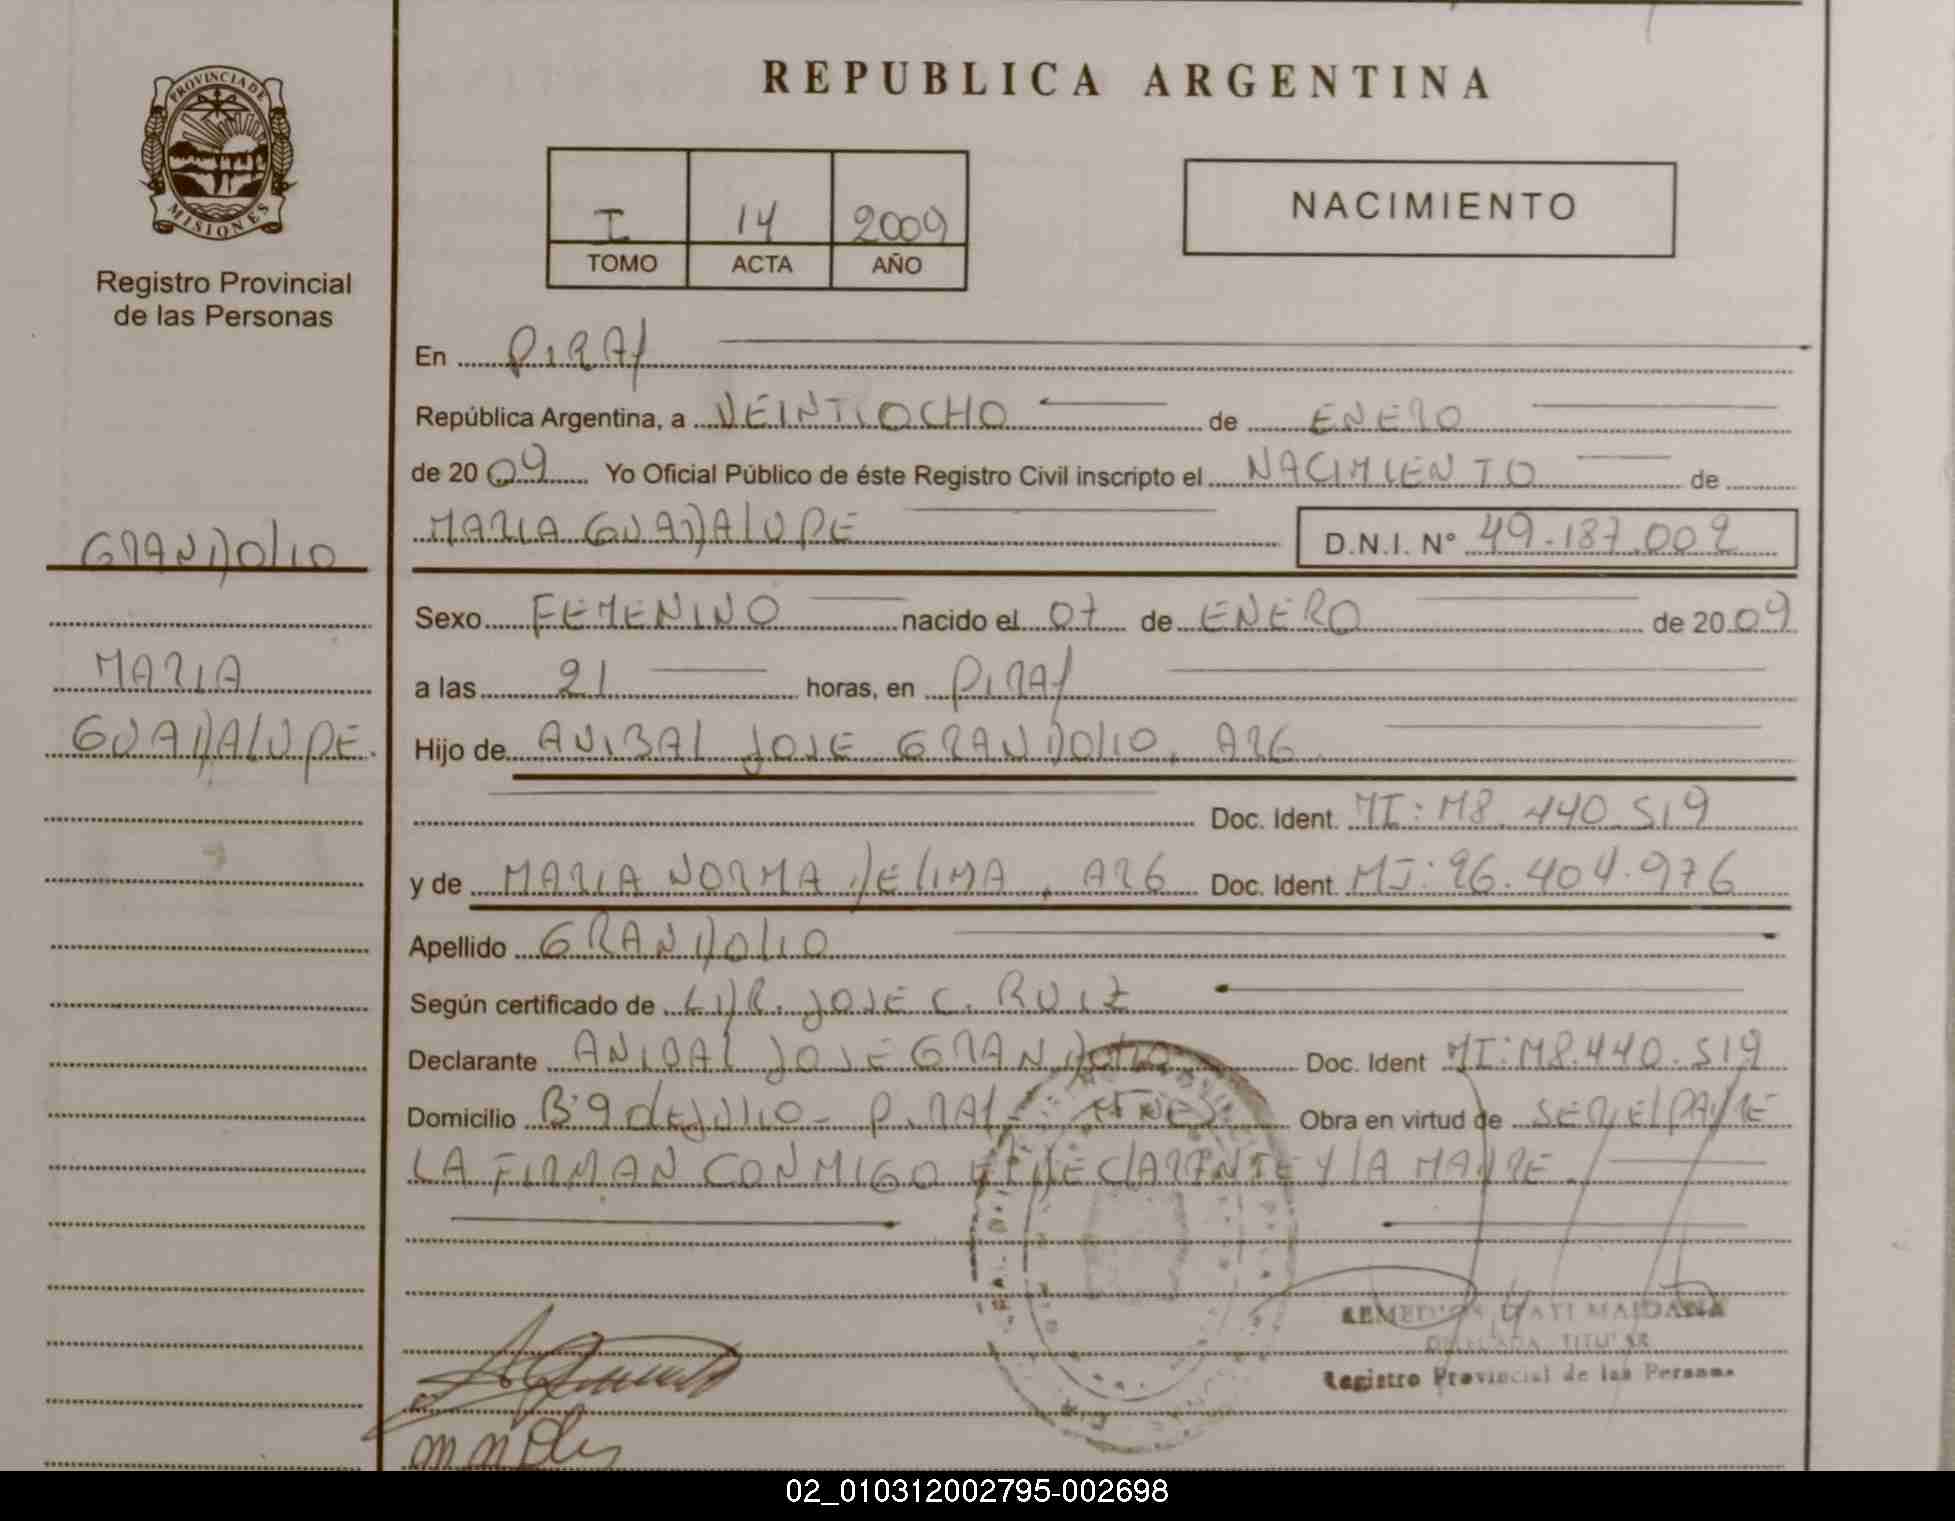 REPUBLICA ARGENTINA
PROVINCIA DE
MISIONES
Registro Provincial
de las Personas
I 14 2009
TOMO ACTA AÑO
NACIMIENTO
En PIRAY
República Argentina, a VEINTIOCHO de ENERO
de 2009 Yo Oficial Público de éste Registro Civil inscripto el NACIMIENTO de
MARIA GUADALUPE D.N.I. N° 49.187.002
GRANDOLIO
MARIA
GUADALUPE.
Sexo FEMENINO nacido el 07 de ENERO de 2009
a las 21 horas, en PIRAY
Hijo de ANIBAL JOSE GRANDOLIO, ARG.
Doc. Ident. MI: M8.440.519
y de MARIA NORMA DE LIMA, ARG Doc. Ident. MI: 96.404.976
Apellido GRANDOLIO
Según certificado de JOSE C. RUIZ
Declarante ANIBAL JOSE GRANDOLIO Doc. Ident MI: M8.440.519
Domicilio Bº 9 de JULIO - PIRAY MNES Obra en virtud de SER EL PADRE
LA FIRMAN CONMIGO EL DECLARENTE Y LA MADRE.
REMEDIOS ITATI MAIDANA
DELEGADA TITULAR
Registro Provincial de las Personas
02_010312002795-002698